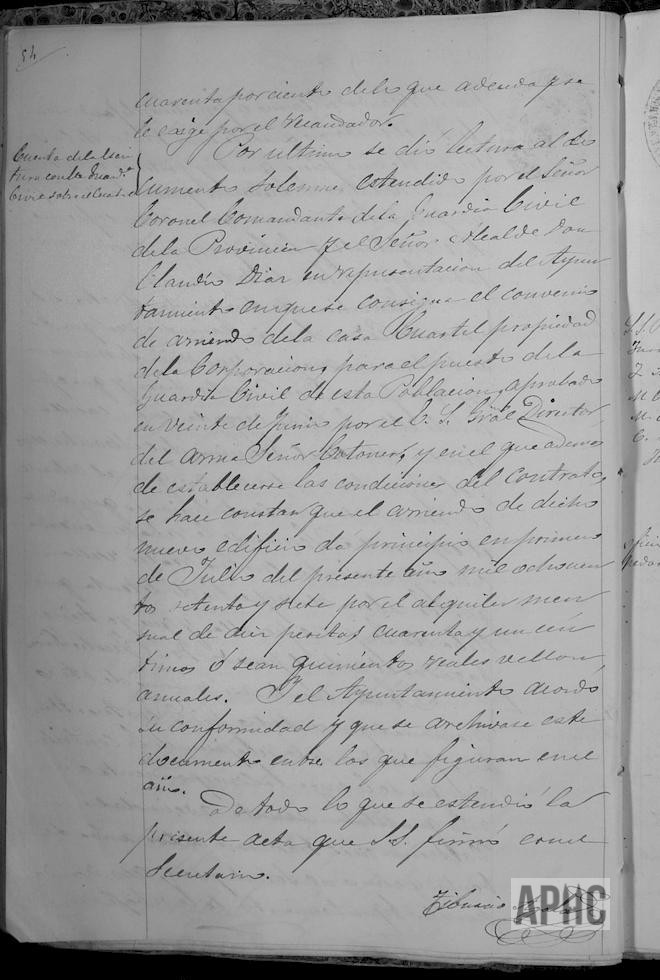 54
cuarenta por ciento de lo que adeuda y se
le exige por el recaudador.
Cuenta de la lec
tura con la Guard.ª
Civil sobre el Cuartel
Por último se dió lectura al do
cumento solemne estendido por el Señor
Coronel Comandante de la Guardia Civil
de la Provincia y el Señor Alcalde Don
Claudio Diaz en representacion del Ayun
tamiento en que se consigna el convenio
de arriendo de la casa Cuartel propiedad
de la Corporacion, para el puesto de la
Guardia Civil de esta Poblacion, aprobado
en veinte de Junio por el E. S. Gral Director
del arma Señor Cotoner, y en el que ademas
de establecerse las condiciones del contrato,
se hace constar que el arriendo de dicho
nuevo edificio da principio en primero
de Julio del presente año mil ochocien
tos setenta y siete por el alquiler men
sual de diez pesetas cuarenta y un cén
timos ó sean quinientos reales vellon
anuales. Y el Ayuntamiento acordó
su conformidad y que se archivase este
documento entre los que figuran en el
año.
De todo lo que se estendió la
presente acta que S.S. firmó con el
Secretario.
APHC